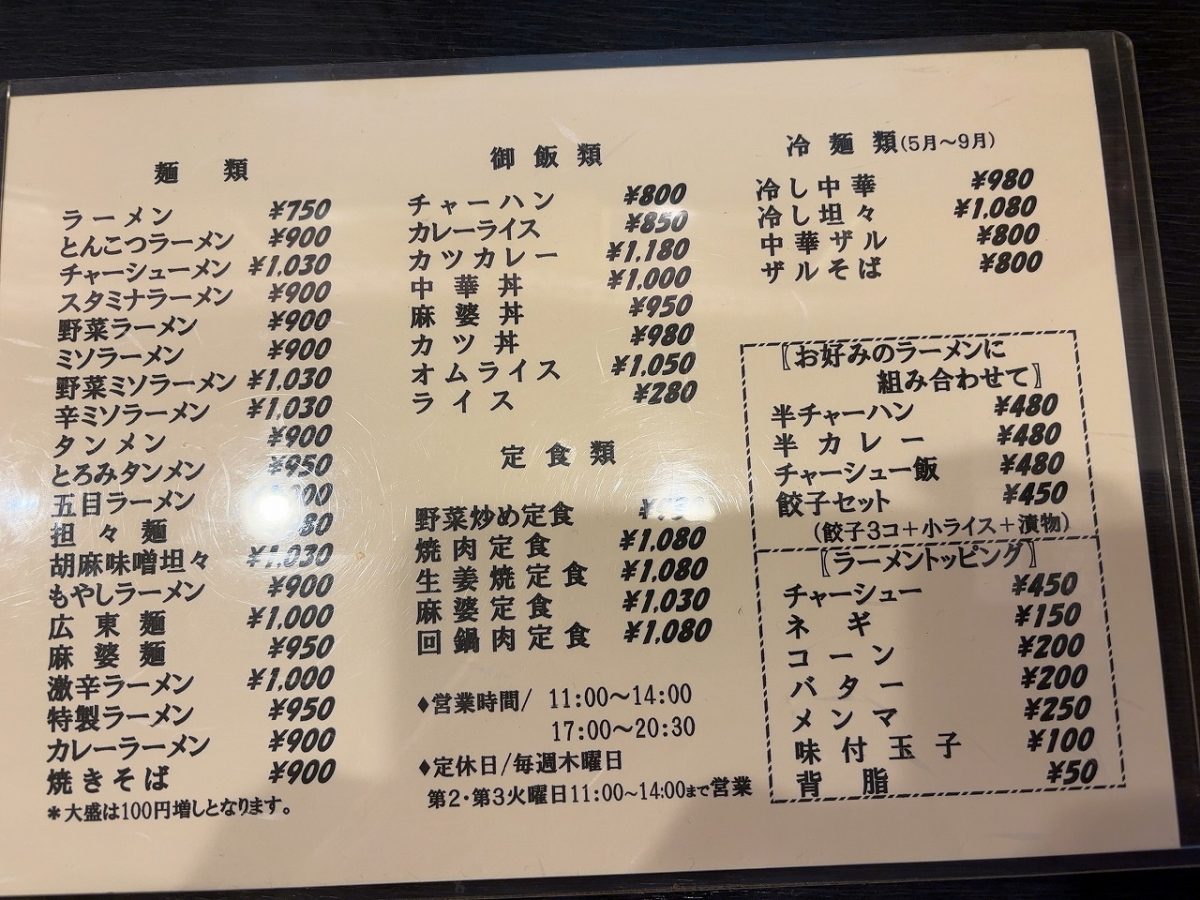 麺類
ラーメン ¥750
とんこつラーメン ¥900
チャーシューメン ¥1,030
スタミナラーメン ¥900
野菜ラーメン ¥900
ミソラーメン ¥900
野菜ミソラーメン ¥1,030
辛ミソラーメン ¥1,030
タンメン ¥900
とろみタンメン ¥950
五目ラーメン
担々麺
胡麻味噌坦々 ¥1,030
もやしラーメン ¥900
広東麺 ¥1,000
麻婆麺 ¥950
激辛ラーメン ¥1,000
特製ラーメン ¥950
カレーラーメン ¥900
焼きそば ¥900
*大盛は100円増しとなります。
御飯類
チャーハン ¥800
カレーライス ¥850
カツカレー ¥1,180
中華丼 ¥1,000
麻婆丼 ¥950
カツ丼 ¥980
オムライス ¥1,050
ライス ¥280
定食類
野菜炒め定食
焼肉定食 ¥1,080
生姜焼定食 ¥1,080
麻婆定食 ¥1,030
回鍋肉定食 ¥1,080
♦営業時間/ 11:00〜14:00
17:00〜20:30
♦定休日/毎週木曜日
第2・第3火曜日11:00〜14:00まで営業
冷麺類(5月〜9月)
冷し中華 ¥980
冷し坦々 ¥1,080
中華ザル ¥800
ザルそば ¥800
〖お好みのラーメンに
組み合わせて〗
半チャーハン ¥480
半カレー ¥480
チャーシュー飯 ¥480
餃子セット ¥450
(餃子3コ+小ライス+漬物)
〖ラーメントッピング〗
チャーシュー ¥450
ネギ ¥150
コーン ¥200
バター ¥200
メンマ ¥250
味付玉子 ¥100
背脂 ¥50